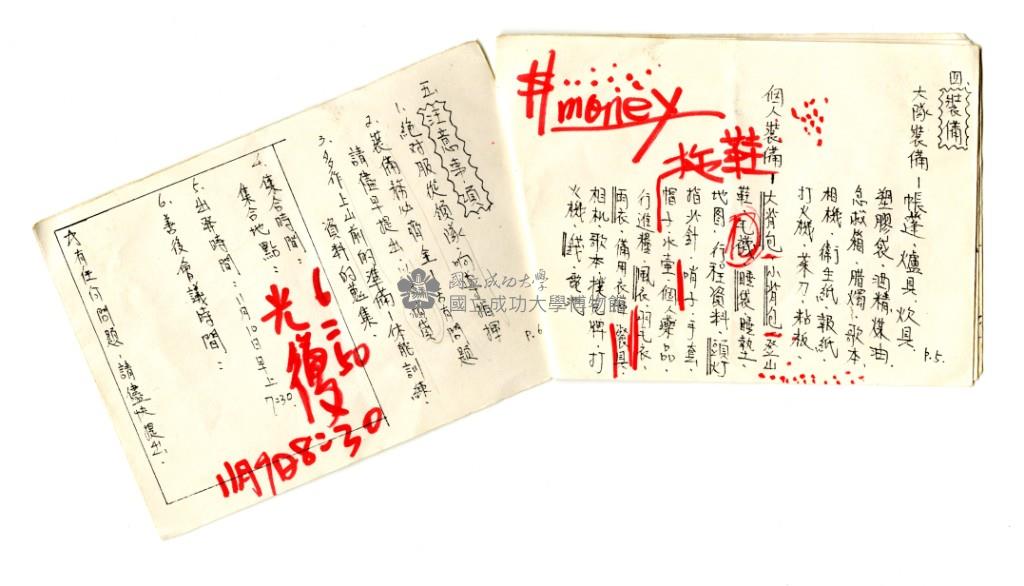 四、裝備
大隊裝備－帳蓬、爐具、炊具、
塑膠袋、酒精、煤油、
急救箱、腊燭、歌本、
相機、衛生紙、報紙
打火機、菜刀、粘板
個人裝備－大背包、小背包、登山
鞋、毛襪、睡袋、睡墊、
地图、行程資料、頭灯
指北針、哨子、手套
帽子、水壶、個人藥品
行進糧、風衣、羽毛衣、
雨衣、備用衣褲、餐具
相机、歌本、撲克牌、打
火機、錢、電
P.5.
#money
拖鞋
五、注意事項：
1、絕对服從領隊、嚮導指揮
2、裝備務必齊全、若有問題
請儘早提出
3、多作上山前的準備－体能訓練、
資料的蒐集
4、集合時間：
集合地點：
5、出發時間：11月10日早上7:30.
6、善後會議時間：
六、有任何問題，請儘快提出.
P.6
6:50
光復
11月9日8:30
國立成功大學
國立成功大學博物館